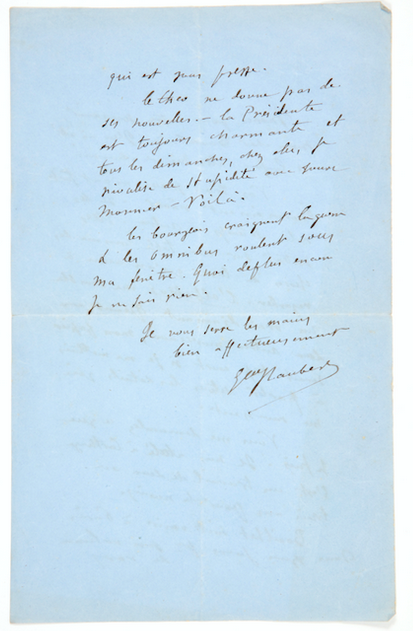 qui est sous presse.
le Theo ne donne pas de
ses nouvelles. — la Présidente
est toujours charmante et
tous les dimanches, chez elle, je
rivalise de stupidité avec henri
Monnier — Voilà.
les bourgeois craignent la guerre
& les omnibus roulent sous
ma fenêtre. Quoi de plus encore
Je ne sais rien.
Je vous serre les mains
bien affectueusement
Gve Flaubert